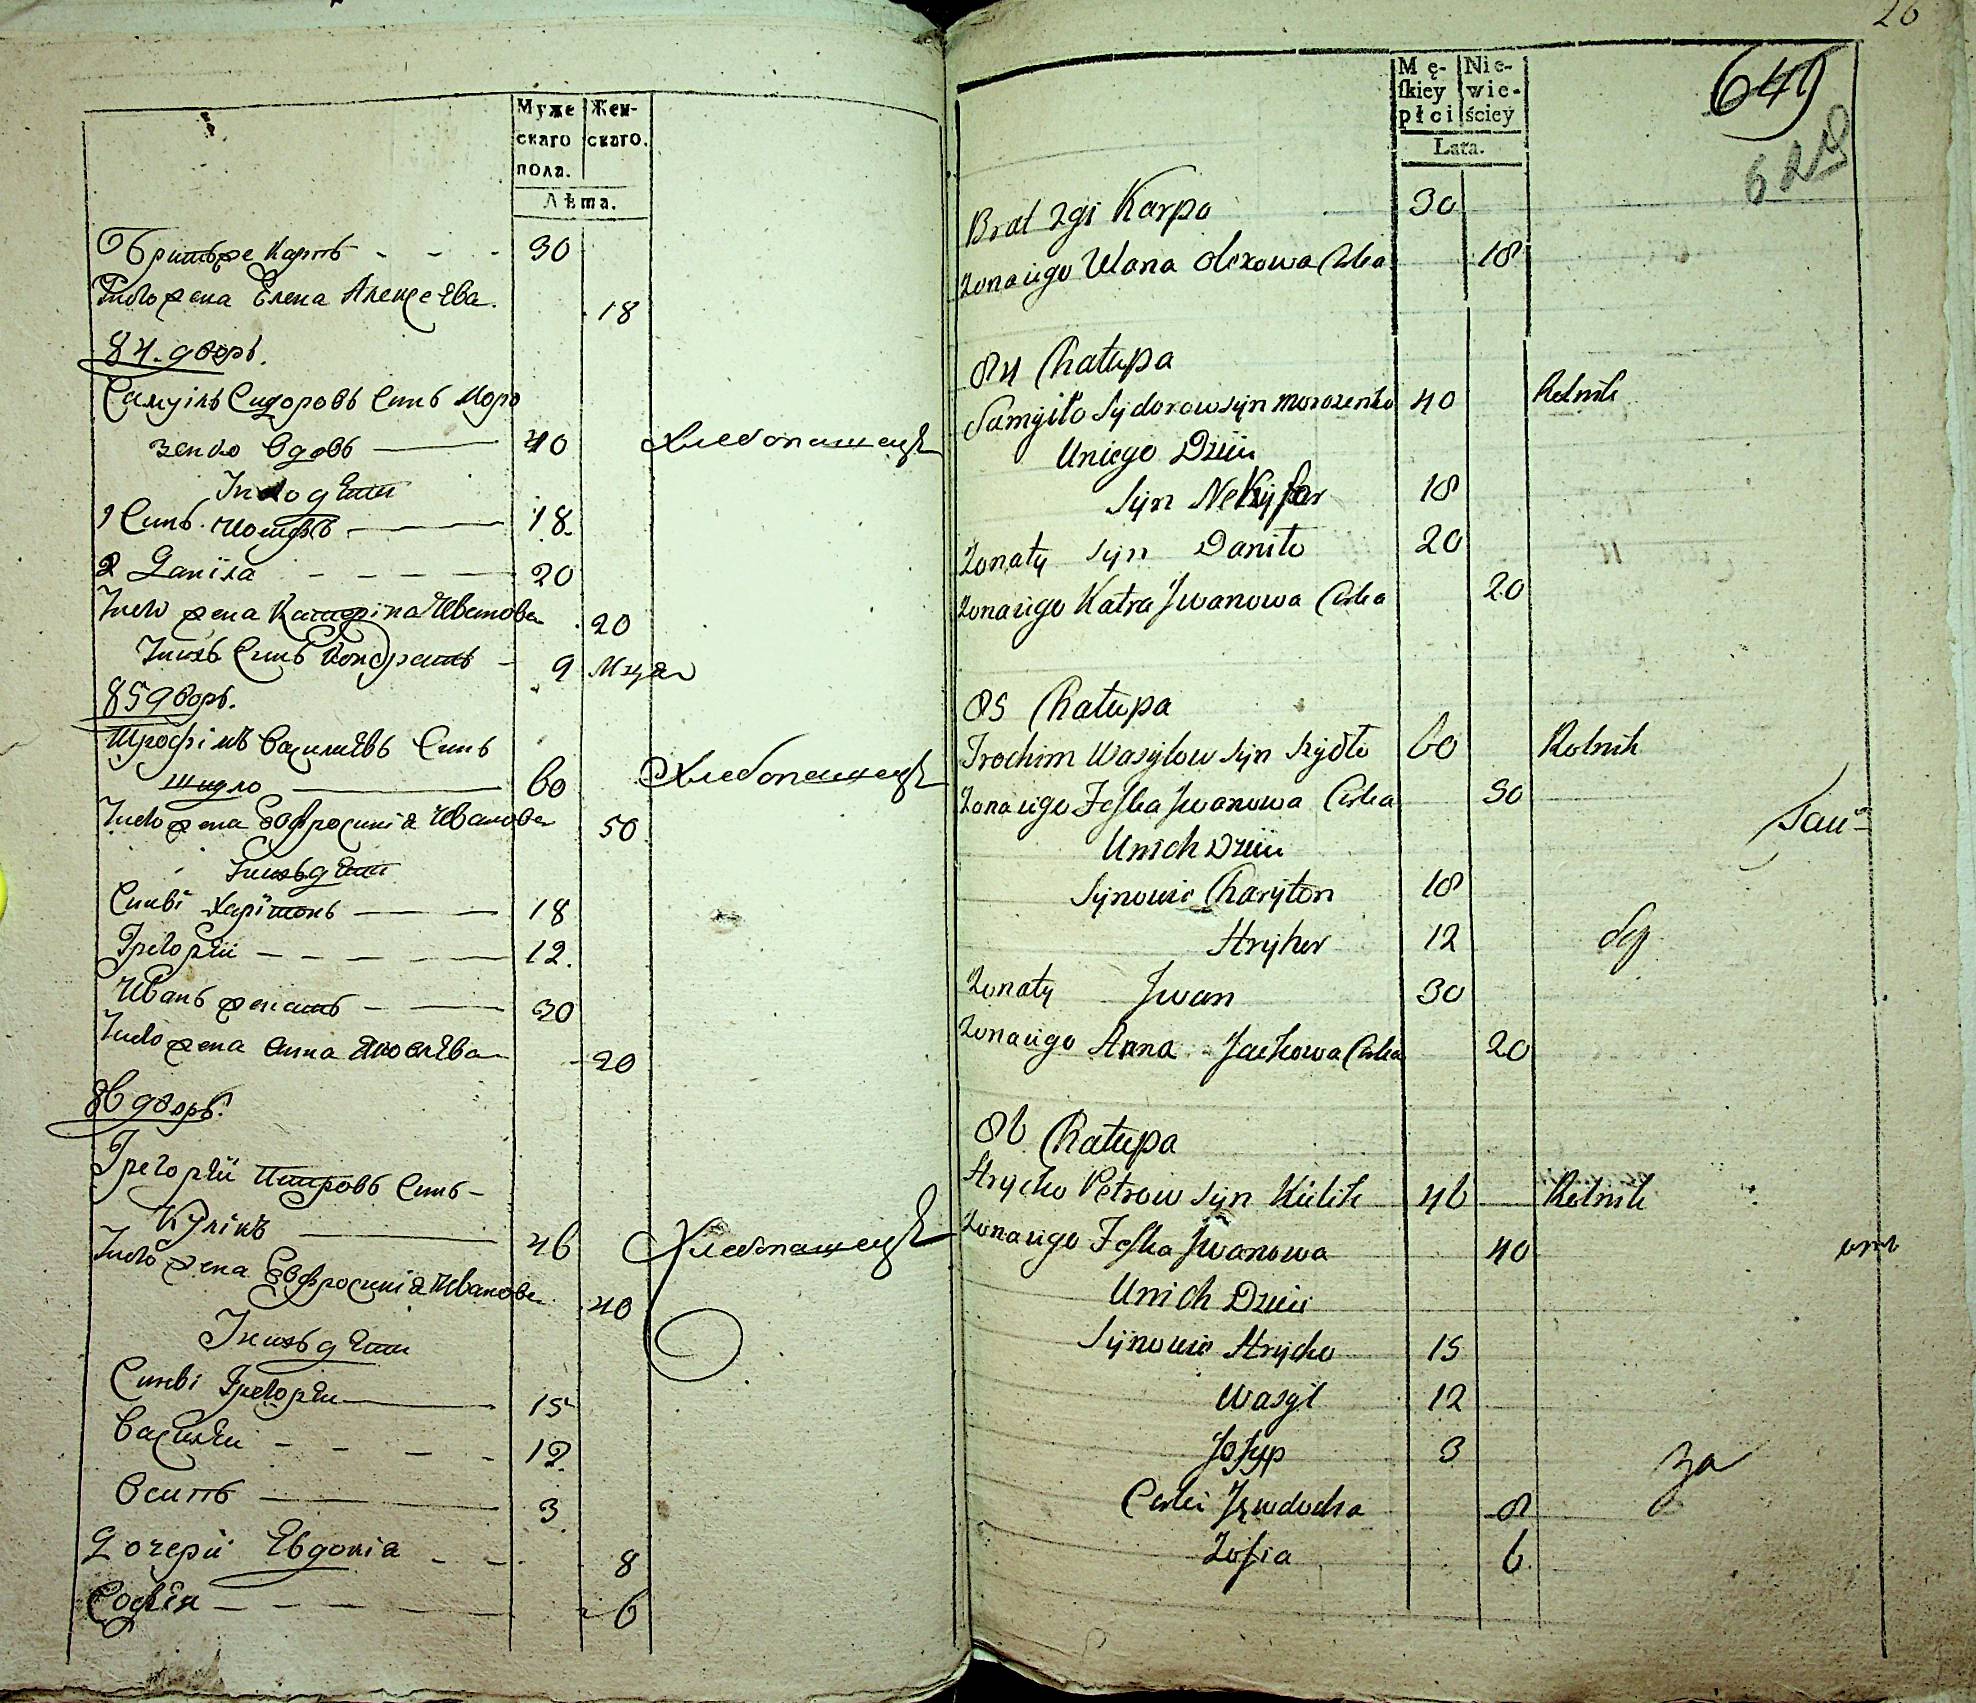 Муже
скаго
пола.
Жен-
скаго.
Лѣта.
Братъ же Карпъ - - - 30
Жена Елена Алексеева. 18
84. дворъ.
Самуілъ Сидоровъ Синъ Моро
зенко вдовъ 40 Хлебопашецъ
дѣти
1 Синъ 18.
2 Даніла - - - 20
жена Катеріна Иванова 20
Синъ Кондратъ - 9 Мцъ
85 дворъ.
Трофімъ Василиевъ Синъ
Шидло 60 Хлебопашецъ
жена Евфросиніа Иванова 50
дѣти
Синві Харітонъ 18
Грегорѣй - - - - 12.
Иванъ женатъ - 30
жена Анна Яковлѣва 20
86 дворъ.
Грегорѣй Петровъ Синъ -
Кулікъ 46 Хлебопашецъ
жена Евфросиніа Иванова 40
дѣти
Синві Грегорѣй 15
Василѣй - - - - 12.
Осипъ 3
Дочери Евдокіа - - 8
Софѣя - - - - 6
26
Mę-
skiey
płci
Nie-
wie-
ściey
Lata.
649
628
Brat Karpo 30
Zona iego Ulana Olexowa Corka 18
84 Chałupa
Samyiło Sydorow syn Morozenko 40 Rolnik
U niego Dzieci
Syn Nekyfor 18
Zonaty syn Daniło 20
Zona iego Katra Jwanowa Corka 20
85 Chałupa
Trochim Wasylow syn Szydło 60 Rolnik
Zona iego Feśka Jwanowa Corka 50
U nich Dzieci
Synowie Charyton 18
Hryhor 12
Zonaty Jwan 30
Zona iego Anna Jackowa Corka 20
86 Chałupa
Hrycko Petrow syn Kulik 46 Rolnik
Zona iego Feśka Jwanowa 40
U nich Dzieci
Synowie Hrycko 15
Wasyl 12
Josyp 3
за
Corki Jewdocha 8
Zofia 6